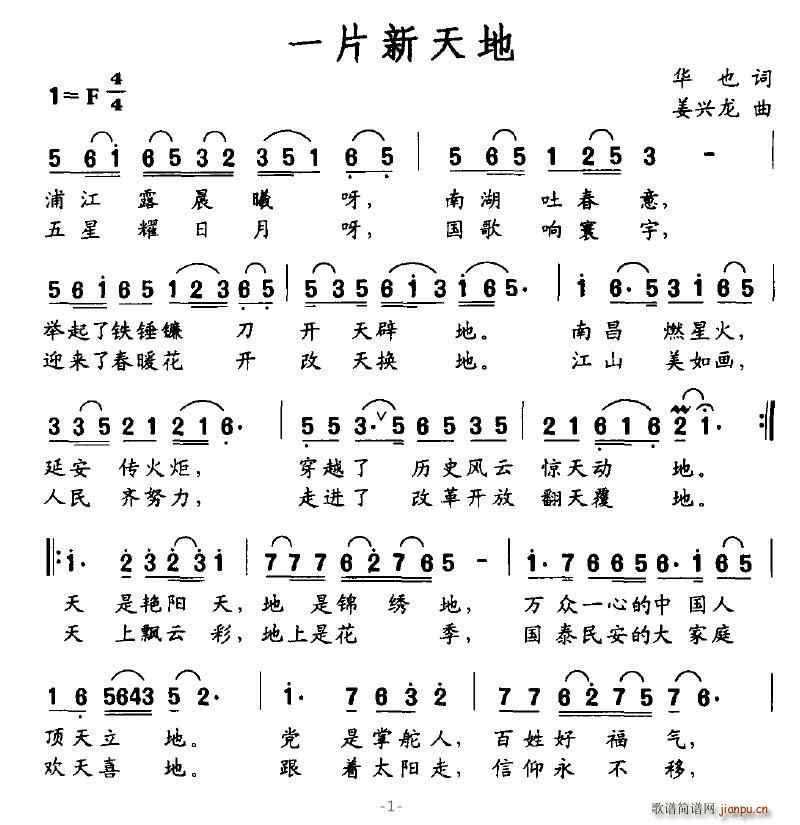 一片新天地
1=F 4/4
华也 词
姜兴龙 曲
5 6 1 6 5 3 2 3 5 1 6 5 | 5 6 5 1 2 5 3 - |
浦江露晨曦呀, 南湖吐春意,
五星耀日月呀, 国歌响寰宇,
5 6 1 6 5 1 2 3 6 5 | 5 3 5 6 1 3 1 6 5· | 1 6·5 3 1 6 5 |
举起了铁锤镰刀开天辟地。 南昌燃星火,
迎来了春暖花开改天换地。 江山美如画,
3 3 5 2 1 2 1 6· | 5 5 3·∨5 6 5 3 5 | 2 1 6 1 6 2 1· :||
延安传火炬, 穿越了历史风云惊天动地。
人民齐努力, 走进了改革开放翻天覆地。
||: 1· 2 3 2 3 1 | 7 7 7 6 2 7 6 5 - | 1·7 6 6 5 6·1 6 5 |
天是艳阳天,地是锦绣地, 万众一心的中国人
天上飘云彩,地上是花季, 国泰民安的大家庭
1 6 5643 5 2· | 1· 7 6 3 2 | 7 7 6 2 7 5 7 6· |
顶天立地。 党是掌舵人,百姓好福气,
欢天喜地。 跟着太阳走,信仰永不移,
-1-
歌谱简谱网
jianpu.cn